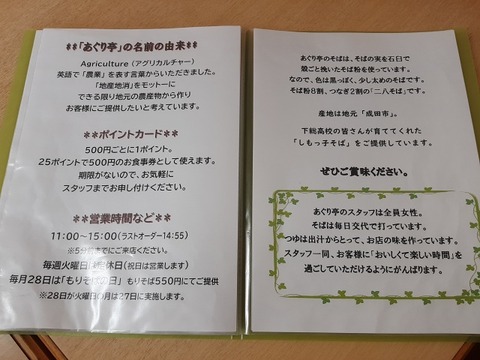 **「あぐり亭」の名前の由来**
Agriculture（アグリカルチャー）
英語で「農業」を表す言葉からいただきました。
「地産地消」をモットーに
できる限り地元の農産物から作り
お客様にご提供したいと考えています。
**ポイントカード**
500円ごとに1ポイント。
25ポイントで500円のお食事券として使えます。
期限がないので、お気軽に
スタッフまでお申し付けください。
**営業時間など**
11:00～15:00(ラストオーダー14:55)
※5分前までにご来店ください。
毎週火曜日 休日(祝日は営業します)
毎月28日は「もりそばの日」もりそば550円にてご提供
※28日が火曜日の月は27日に実施します。
あぐり亭のそばは、そばの実を石臼で
殻ごと挽いたそば粉を使っています。
なので、色は黒っぽく、少し太めのそばです。
そば粉8割、つなぎ2割の「二八そば」です。
産地は地元「成田市」。
下総高校の皆さんが育ててくれた
「しもっ子そば」をご提供しています。
ぜひご賞味ください。
あぐり亭のスタッフは全員女性。
そばは毎日交代で打っています。
つゆは出汁からとって、お店の味を作っています。
スタッフ一同、お客様に「おいしくて楽しい時間」を
過ごしていただけるようにがんばります。